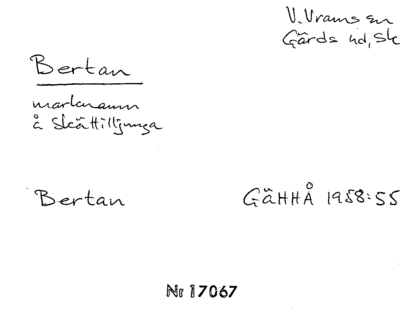 V. Vrams sn
Gärds hd, Sk
Bertan
marknamn
å Skättilljunga
Bertan
GÄHHÅ 1958:55
Nr 17067